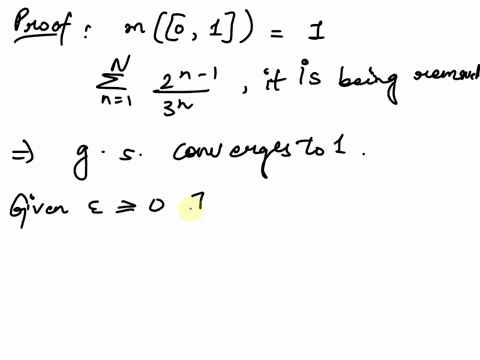 Proof : m([0, 1]) = 1
N ∑ n=1 2^{n-1} / 3^n , it is being
⇒ g. s. converges to 1.
Given ε ≥ 0